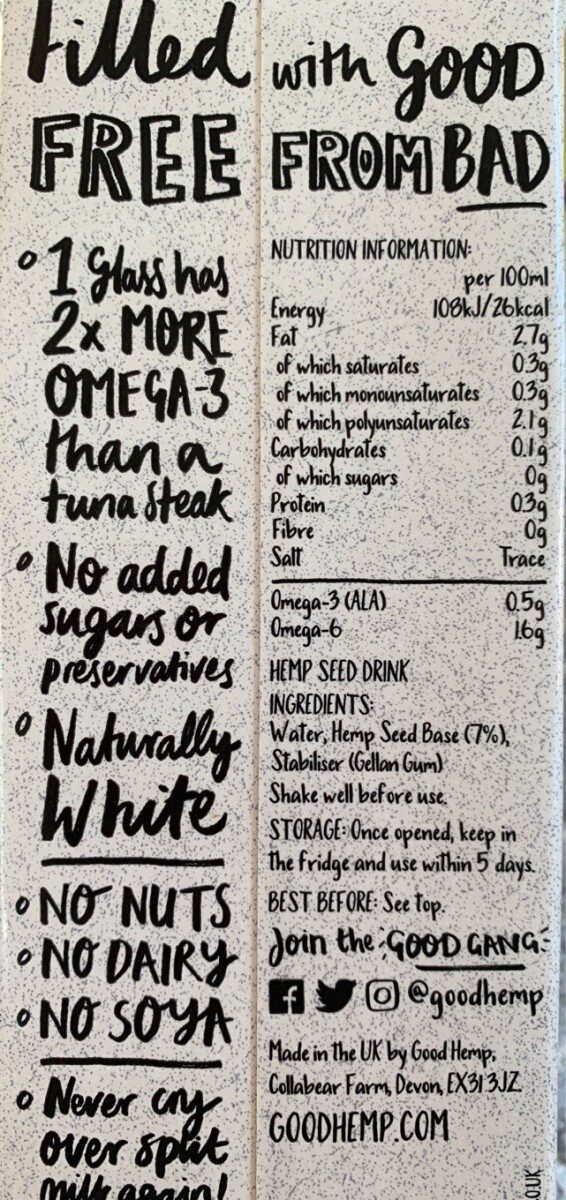 Filled with GOOD
FREE FROM BAD
1 Glass has
2x MORE
OMEGA-3
than a
tuna steak
No added
sugars or
preservatives
Naturally
White
NO NUTS
NO DAIRY
NO SOYA
Never cry
over spilt
milk again!
NUTRITION INFORMATION:
per 100ml
Energy 108kJ/26kcal
Fat 2.7g
of which saturates 0.3g
of which monounsaturates 0.3g
of which polyunsaturates 2.1g
Carbohydrates 0.1g
of which sugars 0g
Protein 0.3g
Fibre 0g
Salt Trace
Omega-3 (ALA) 0.5g
Omega-6 1.6g
HEMP SEED DRINK
INGREDIENTS:
Water, Hemp Seed Base (7%),
Stabiliser (Gellan Gum)
Shake well before use.
STORAGE: Once opened, keep in
the fridge and use within 5 days.
BEST BEFORE: See top.
Join the GOOD GANG
@goodhemp
Made in the UK by Good Hemp,
Collabear Farm, Devon, EX31 3JZ
GOODHEMP.COM